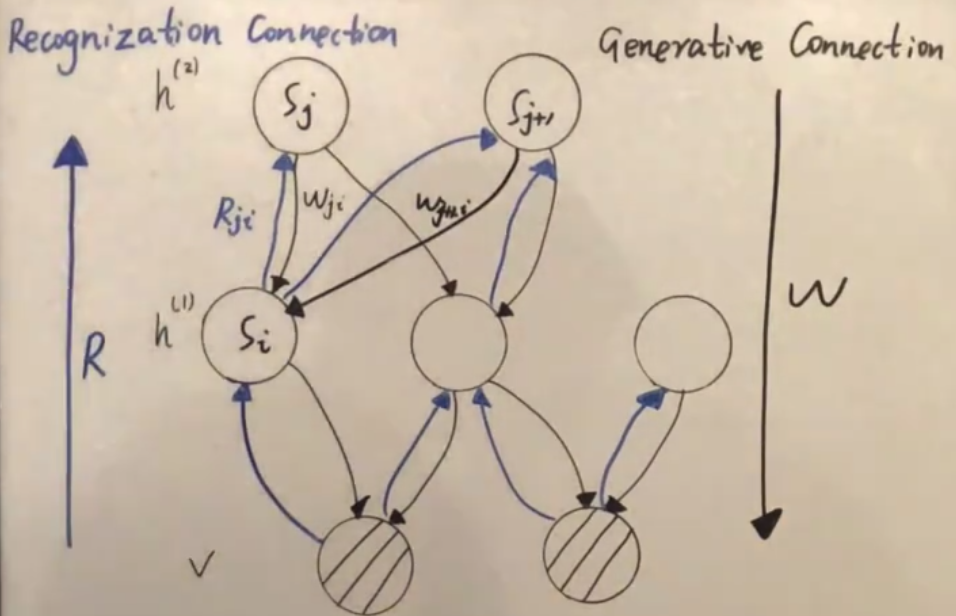 Recognization Connection
Generative Connection
h^(2)
S_j
S_j+1
R_ji
W_ji
W_j+1,i
h^(1)
S_i
R
W
V